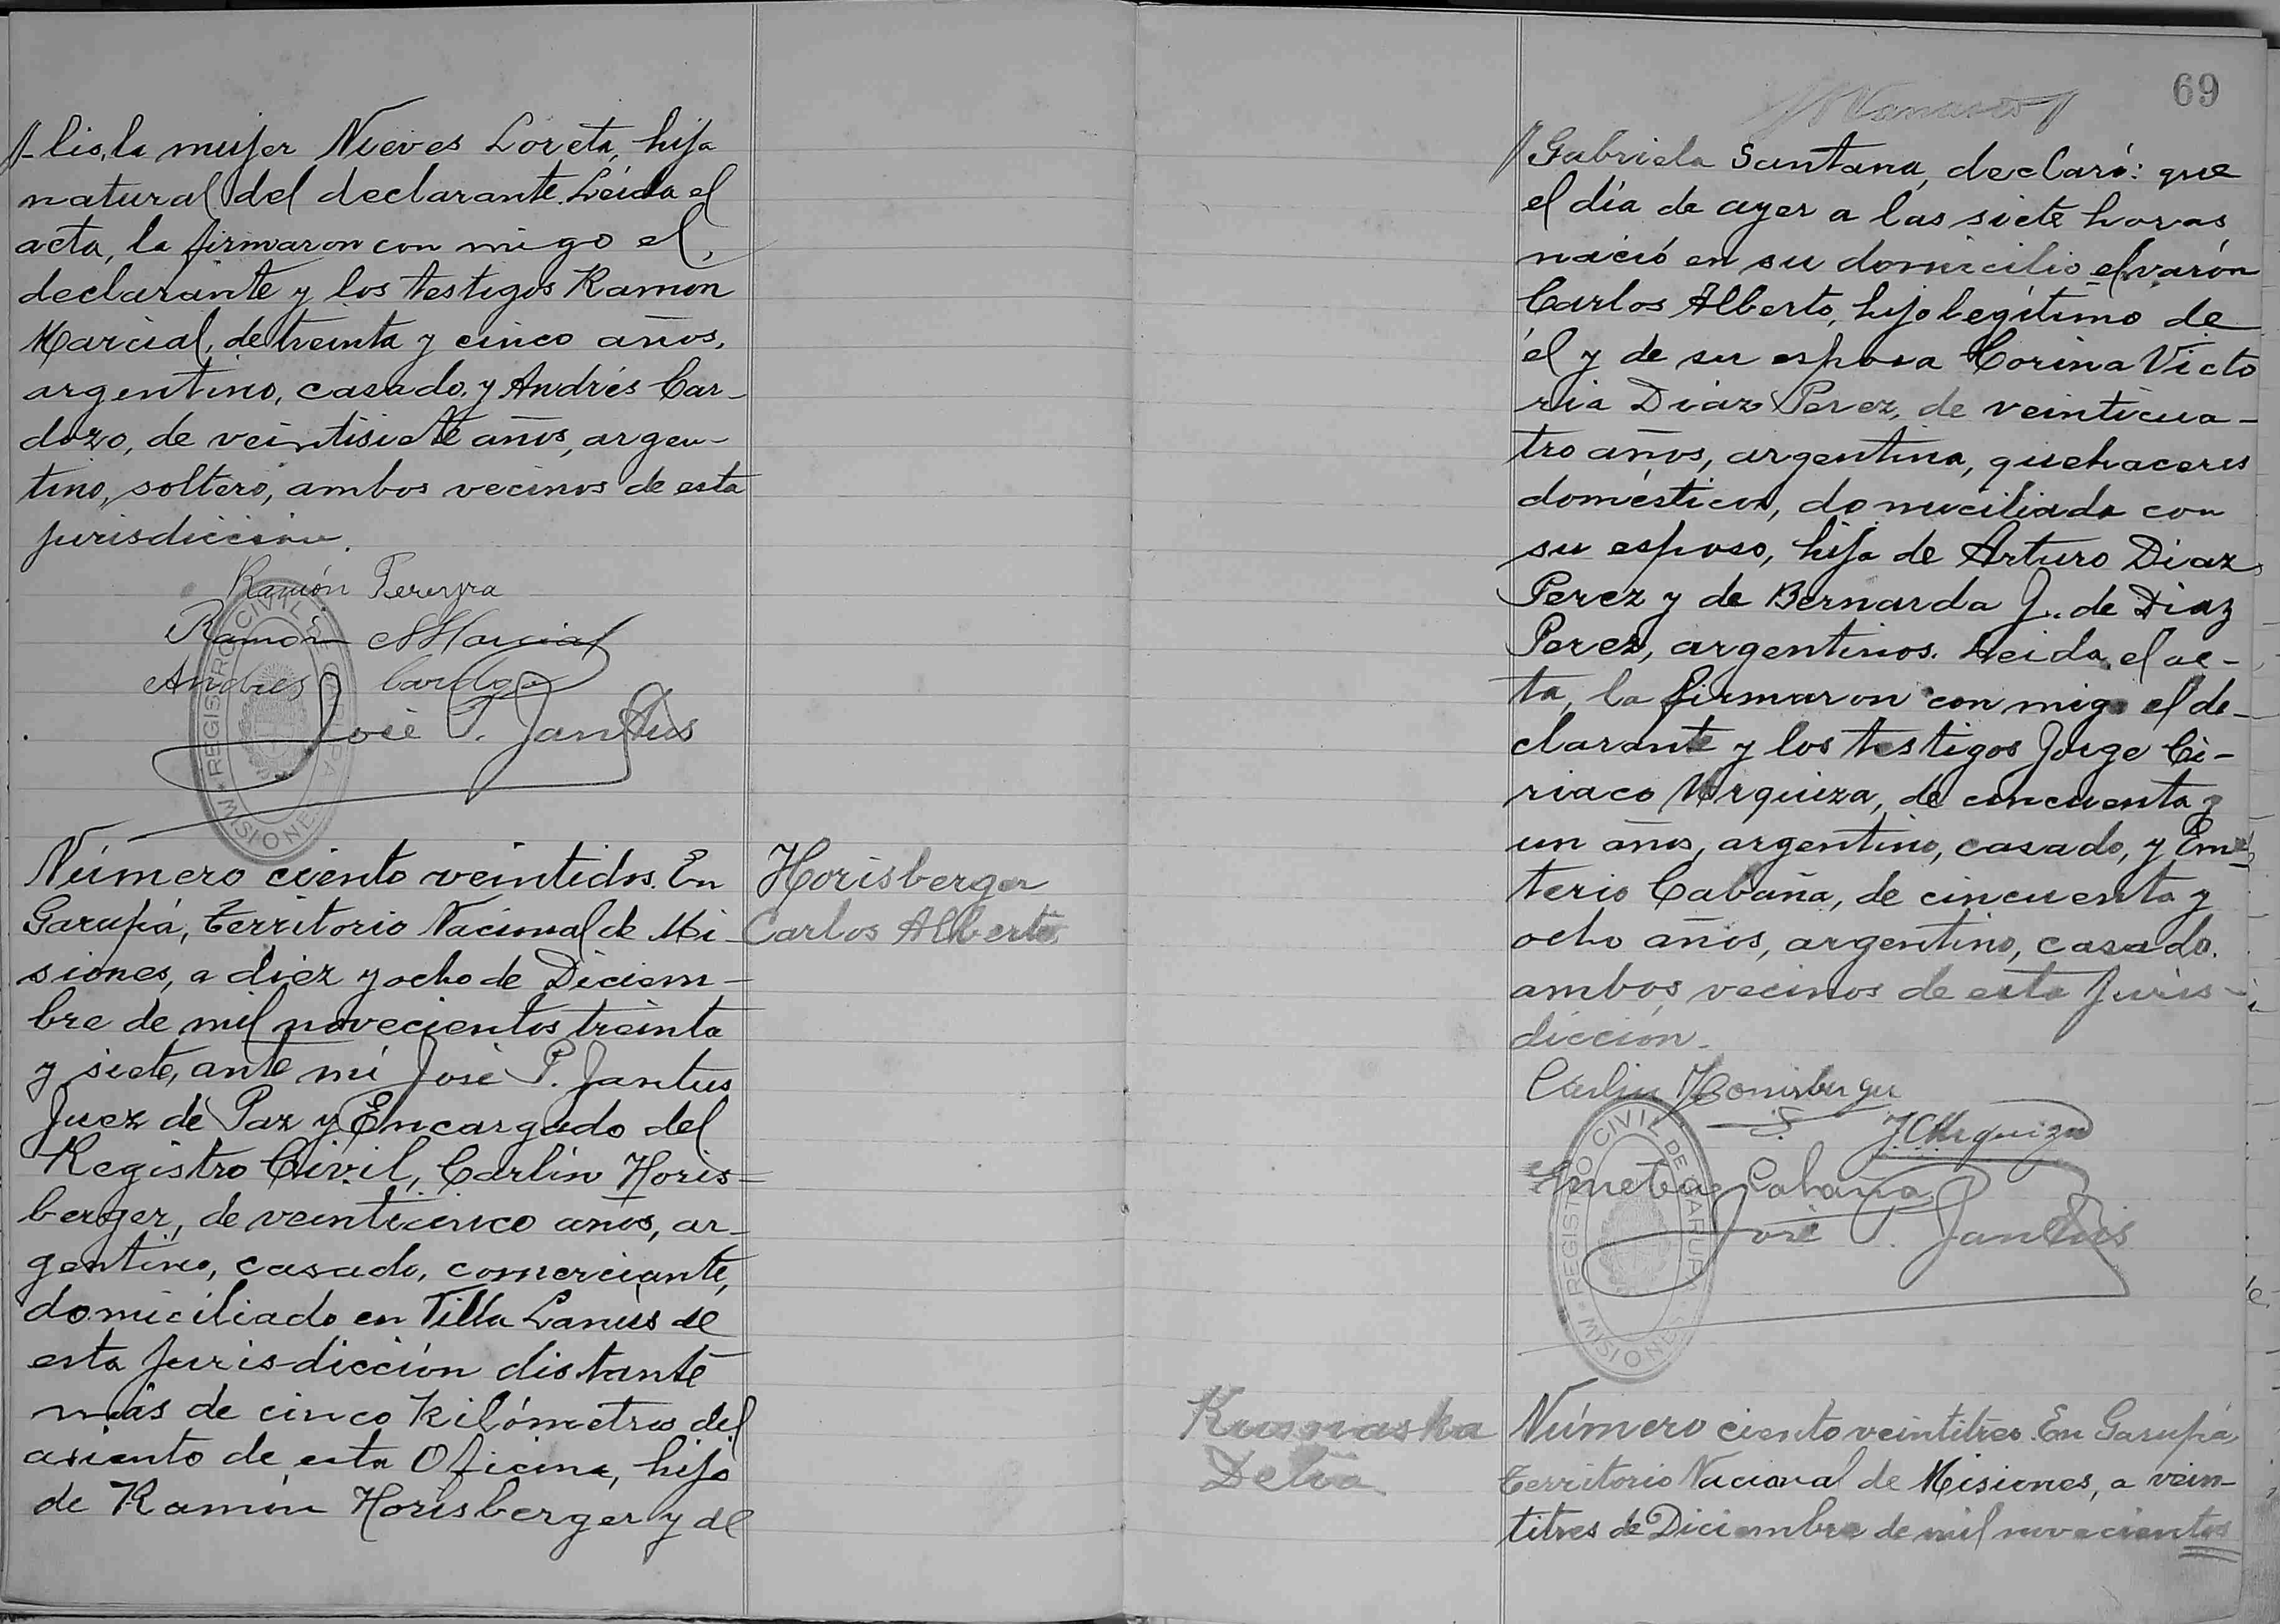 lio, la mujer Nieves Loreta, hija
natural del declarante. Leída el
acta, la firmaron con migo el
declarante y los testigos Ramon
Marcial, de treinta y cinco años,
argentino, casado, y Andrés Car-
dozo, de veintisiete años, argen-
tino, soltero, ambos vecinos de esta
jurisdicción.
Ramón Pereyra
Ramón Marcial
Andres Cardozo
José P. Jantus
REGISTRO CIVIL DE GARUPA
MISIONES
Número ciento veintidos. En
Garupá, Territorio Nacional de Mi-
siones, a diez y ocho de Diciem-
bre de mil novecientos treinta
y siete, ante mí José P. Jantus
Juez de Paz y Encargado del
Registro Civil, Carlín Horis-
berger, de veinticinco años, ar-
gentino, casado, comerciante,
domiciliado en Villa Lanús de
esta jurisdicción distante
más de cinco kilómetros del
asiento de esta Oficina, hijo
de Ramón Horisberger y de
Horisberger
Carlos Alberto
69
Gabriela Santana, declaró: que
el día de ayer a las siete horas
nació en su domicilio el varón
Carlos Alberto, hijo legítimo de
él y de su esposa Corina Victo
ria Diaz Perez, de veinticua-
tro años, argentina, quehaceres
domésticos, domiciliada con
su esposo, hija de Arturo Diaz
Perez y de Bernarda J. de Diaz
Perez, argentinos. Leida el ac-
ta, la firmaron con migo el de-
clarante y los testigos Jorge Ci-
riaco Urquiza, de cincuenta y
un años, argentino, casado, y Eme
terio Cabaña, de cincuenta y
ocho años, argentino, casado.
ambos vecinos de esta juris-
dicción.
Carlin Horisberger
J. C. Urquiza
Emeterio Cabaña
José P. Jantus
REGISTRO CIVIL DE GARUPA
MISIONES
Delia
Número ciento veintitres. En Garupá,
Territorio Nacional de Misiones, a vein-
titres de Diciembre de mil novecientos